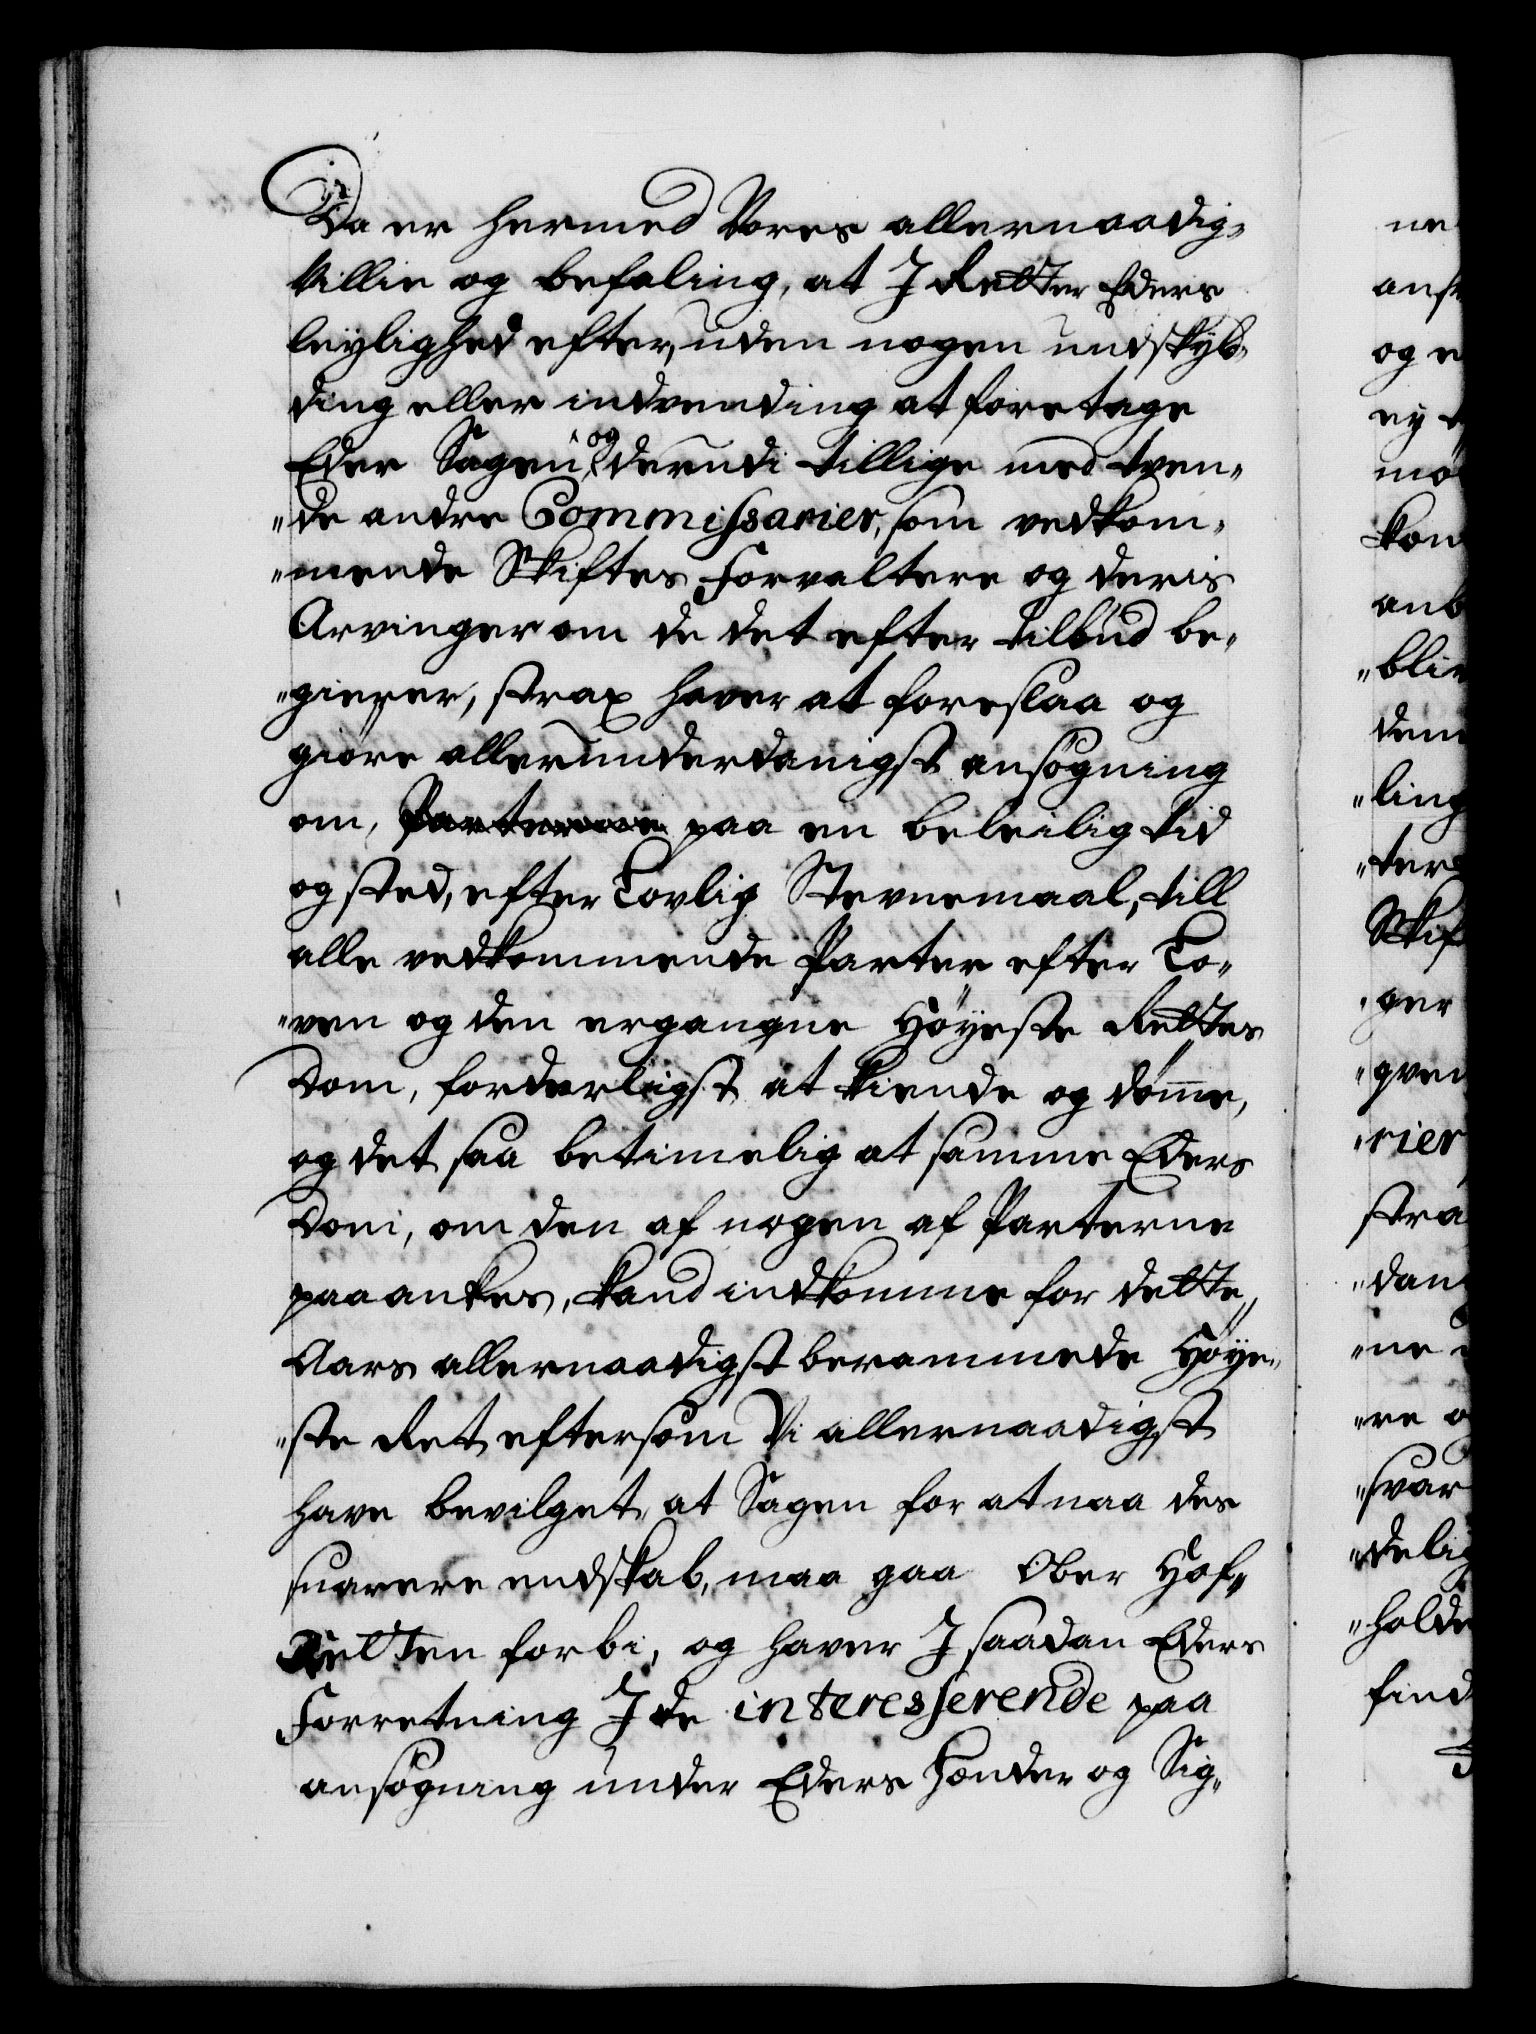 Da er hermed Vores allernaadig„
Villie og befaling, at I Retter Eders
leylighed efter, uden nogen undskyl„
ding eller indvending at foretage
Eder Sagen, og derudi tillige med tven„
„de andre Commissarier, som vedkom„
„mende Skiftes Forvaltere og deris
Arvinger om de det efter tilbud be„
„gierer, strax haver at foreslaa og
giøre allerunderdanigst ansøgning
om, Parterne paa en beleilig tid
og sted, efter Lovlig Stevnemaal, till
alle vedkommende Parter efter Lo„
„ven og den ergangne Høyeste Rettes
Dom, forderligst at kiende og dømme,
og det saa betimelig at samme Eders
Dom, om den af nogen af Parterne
paaankes, kand indkomme for dette
Aars allernaadigst berammede Høye„
„ste Ret, eftersom Vi allernaadigst
have bevilget, at Sagen for at naa des
snarere endskab, maa gaa Ober Hof„
Retten forbi, og haver I saadan Eders
Forretning I de interesserende paa
ansøgning under Eders Hænder og Sig„
ne
anse
og e
ey
mø
kon
anb
„bliv
dem
„ling
„ter
Skif
„ger
„gven
„rier
stra
„dan
„ne
„re o
„svar
„delig
„holde
find